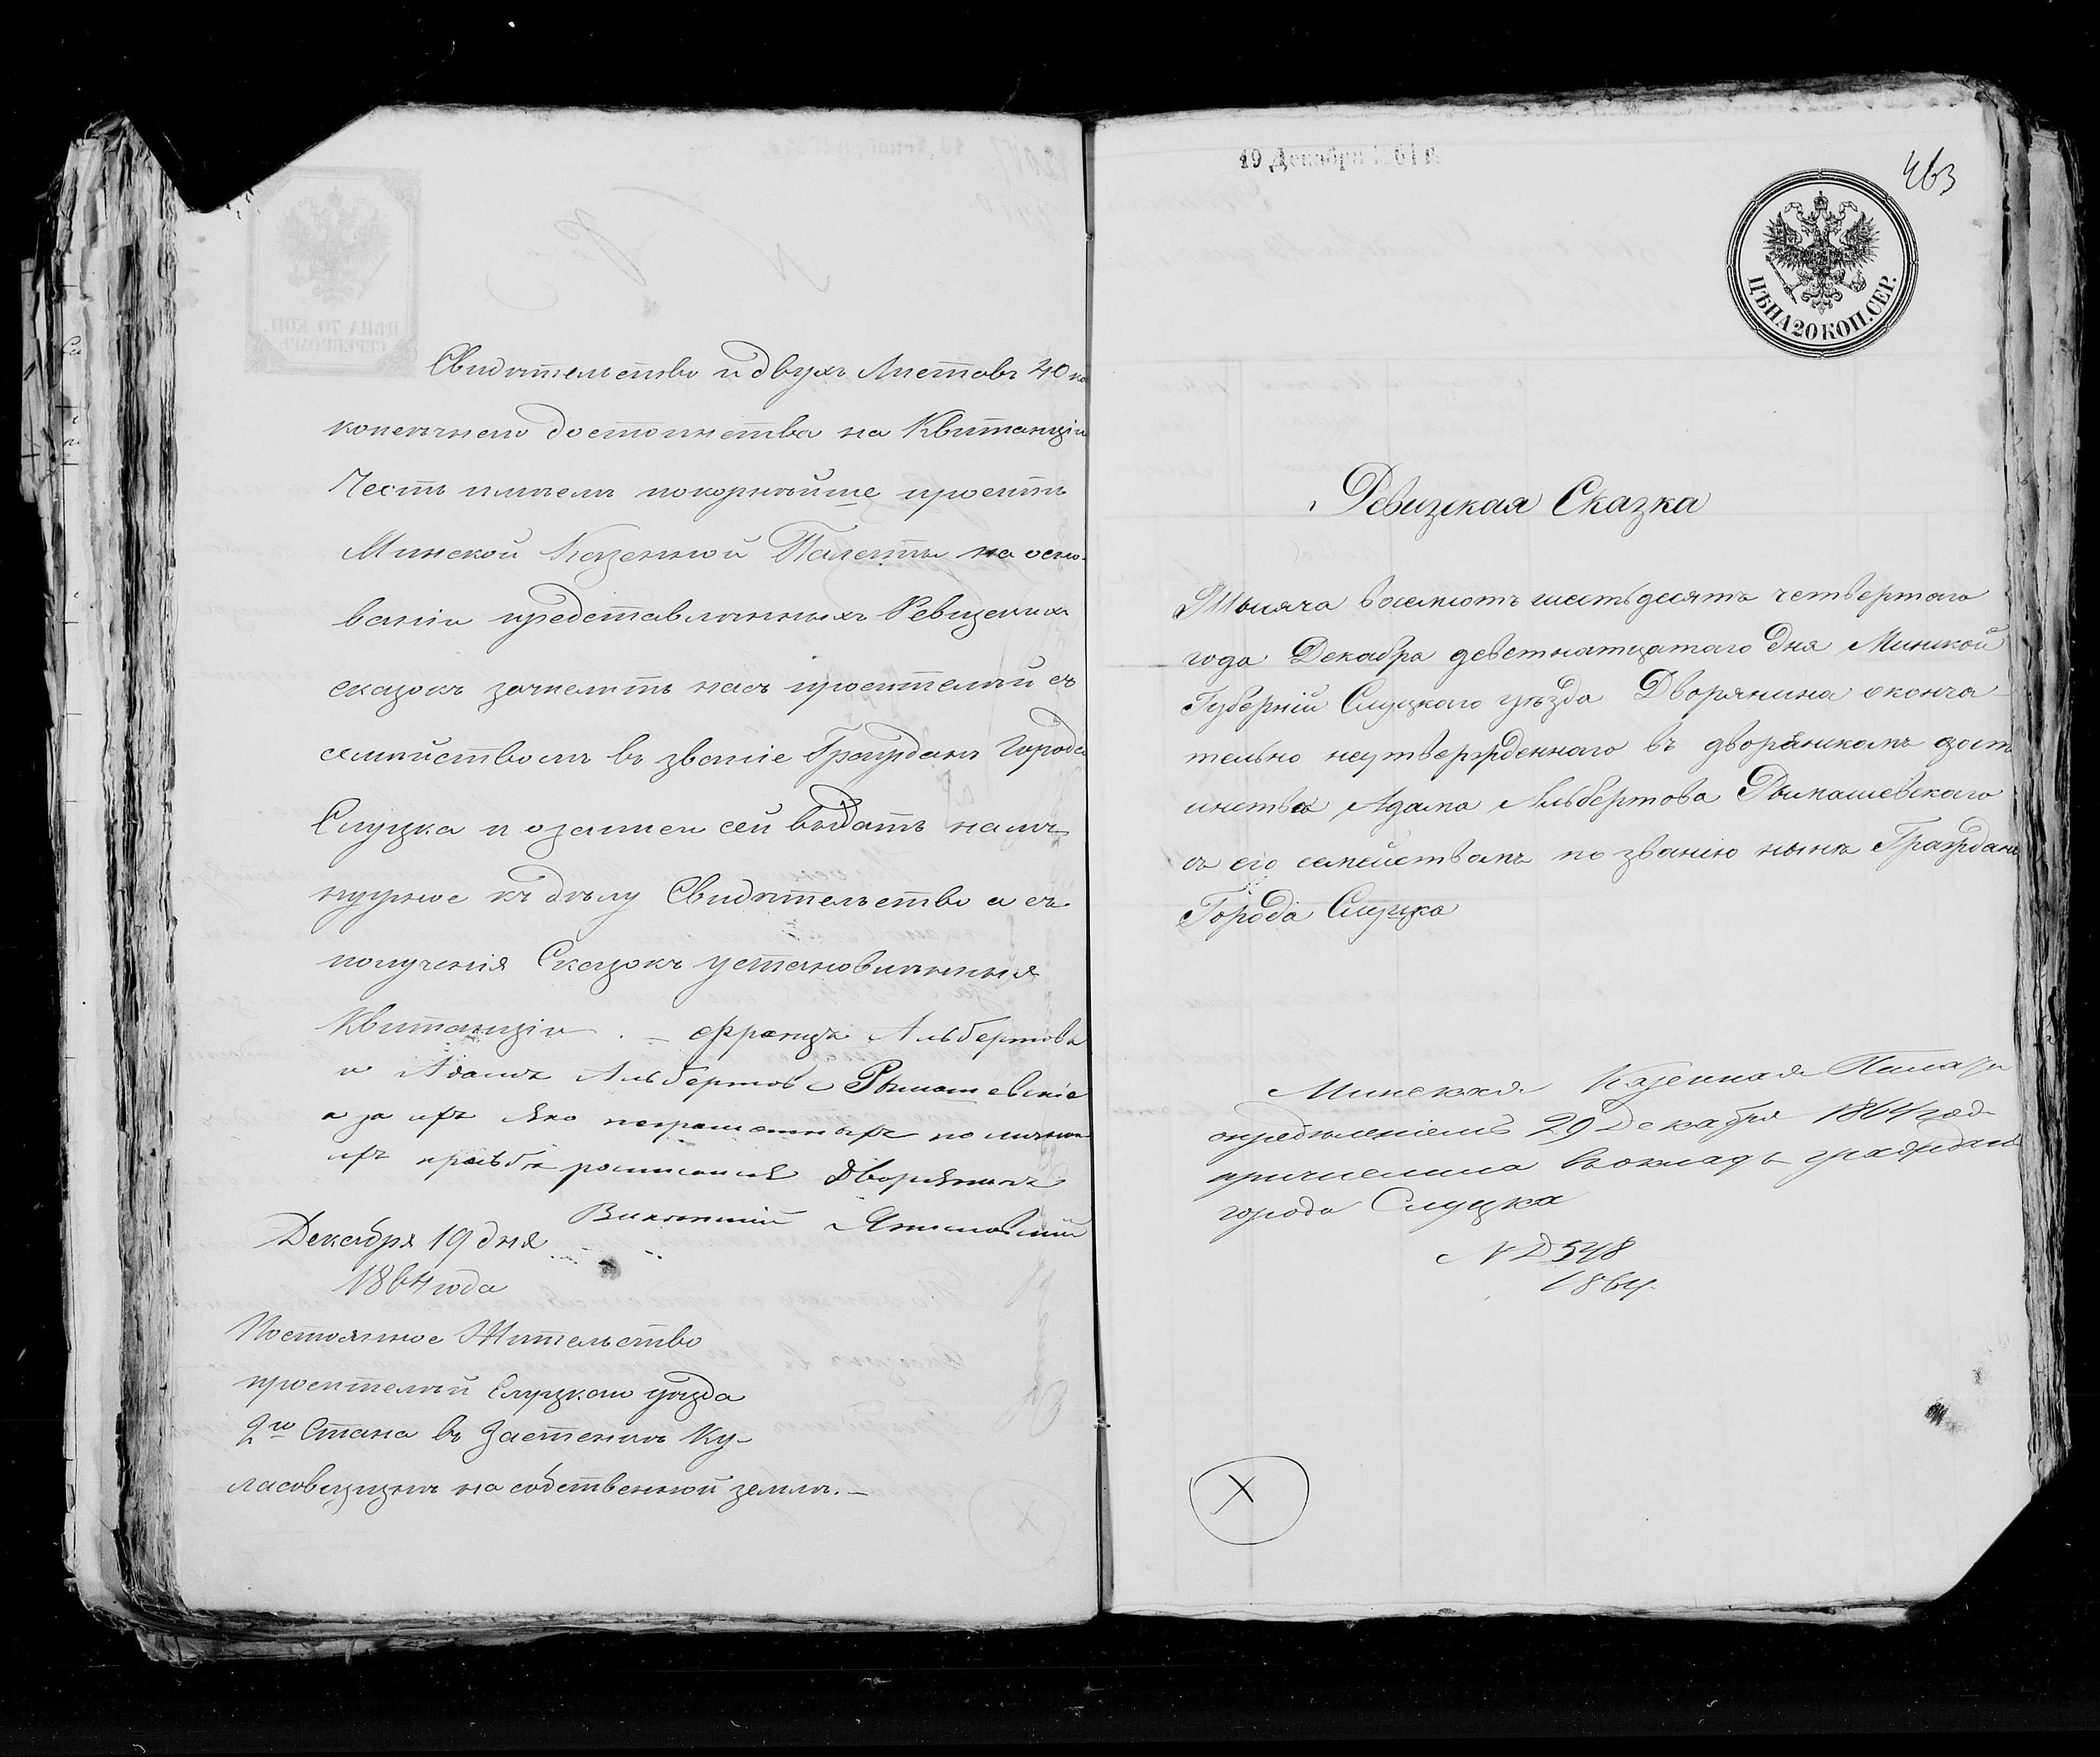 Свидѣтельство и двухъ Листовъ 40 ко
копеечнаго достоинства на Квитанціи
Честь имѣемъ покорнѣйше просить
Минской Казенной Палаты на осно-
ваніи представленныхъ Ревизскихъ
сказокъ зачислить насъ просителей съ
семействомъ въ званіе Гражданъ Города
Слуцка и о семъ выдать намъ
нужное къ дѣлу Свидѣтельство а съ
полученія Сказокъ установленныя
Квитанціи. — Францъ Альбертовъ
и Адамъ Альбертовъ Рымашевскіе
а за ихъ яко неграмотныхъ по личной
ихъ прозьбѣ росписался Дворянинъ
Викентій
Декабря 19 дня
1864 года
Постоянное Жительство
просителей Слуцкого уѣзда
2го Стана въ Застенкѣ Ку-
ласовщизнѣ на собственной землѣ. —
19 Декабря 1864 г.
463
ЦѢНА 20 КОП. СЕР.
Ревизская Сказка
Тысяча восемсотъ шестьдесятъ четвертаго
года Декабра деветнатцатаго Дня Минской
Губерніи Слуцкого уѣзда Дворянина оконча-
тельно неутвержденнаго въ дворянскомъ дост
инства Адама Альбертова Рымашевскаго
съ его семействамъ по званію нынѣ Граждан
Города Слуцка
Минская Казенная Палата
опредѣленіемъ 29 Декабря 1864 года
причислила въ окладъ гражданъ
города Слуцка
№ 548
1864
X